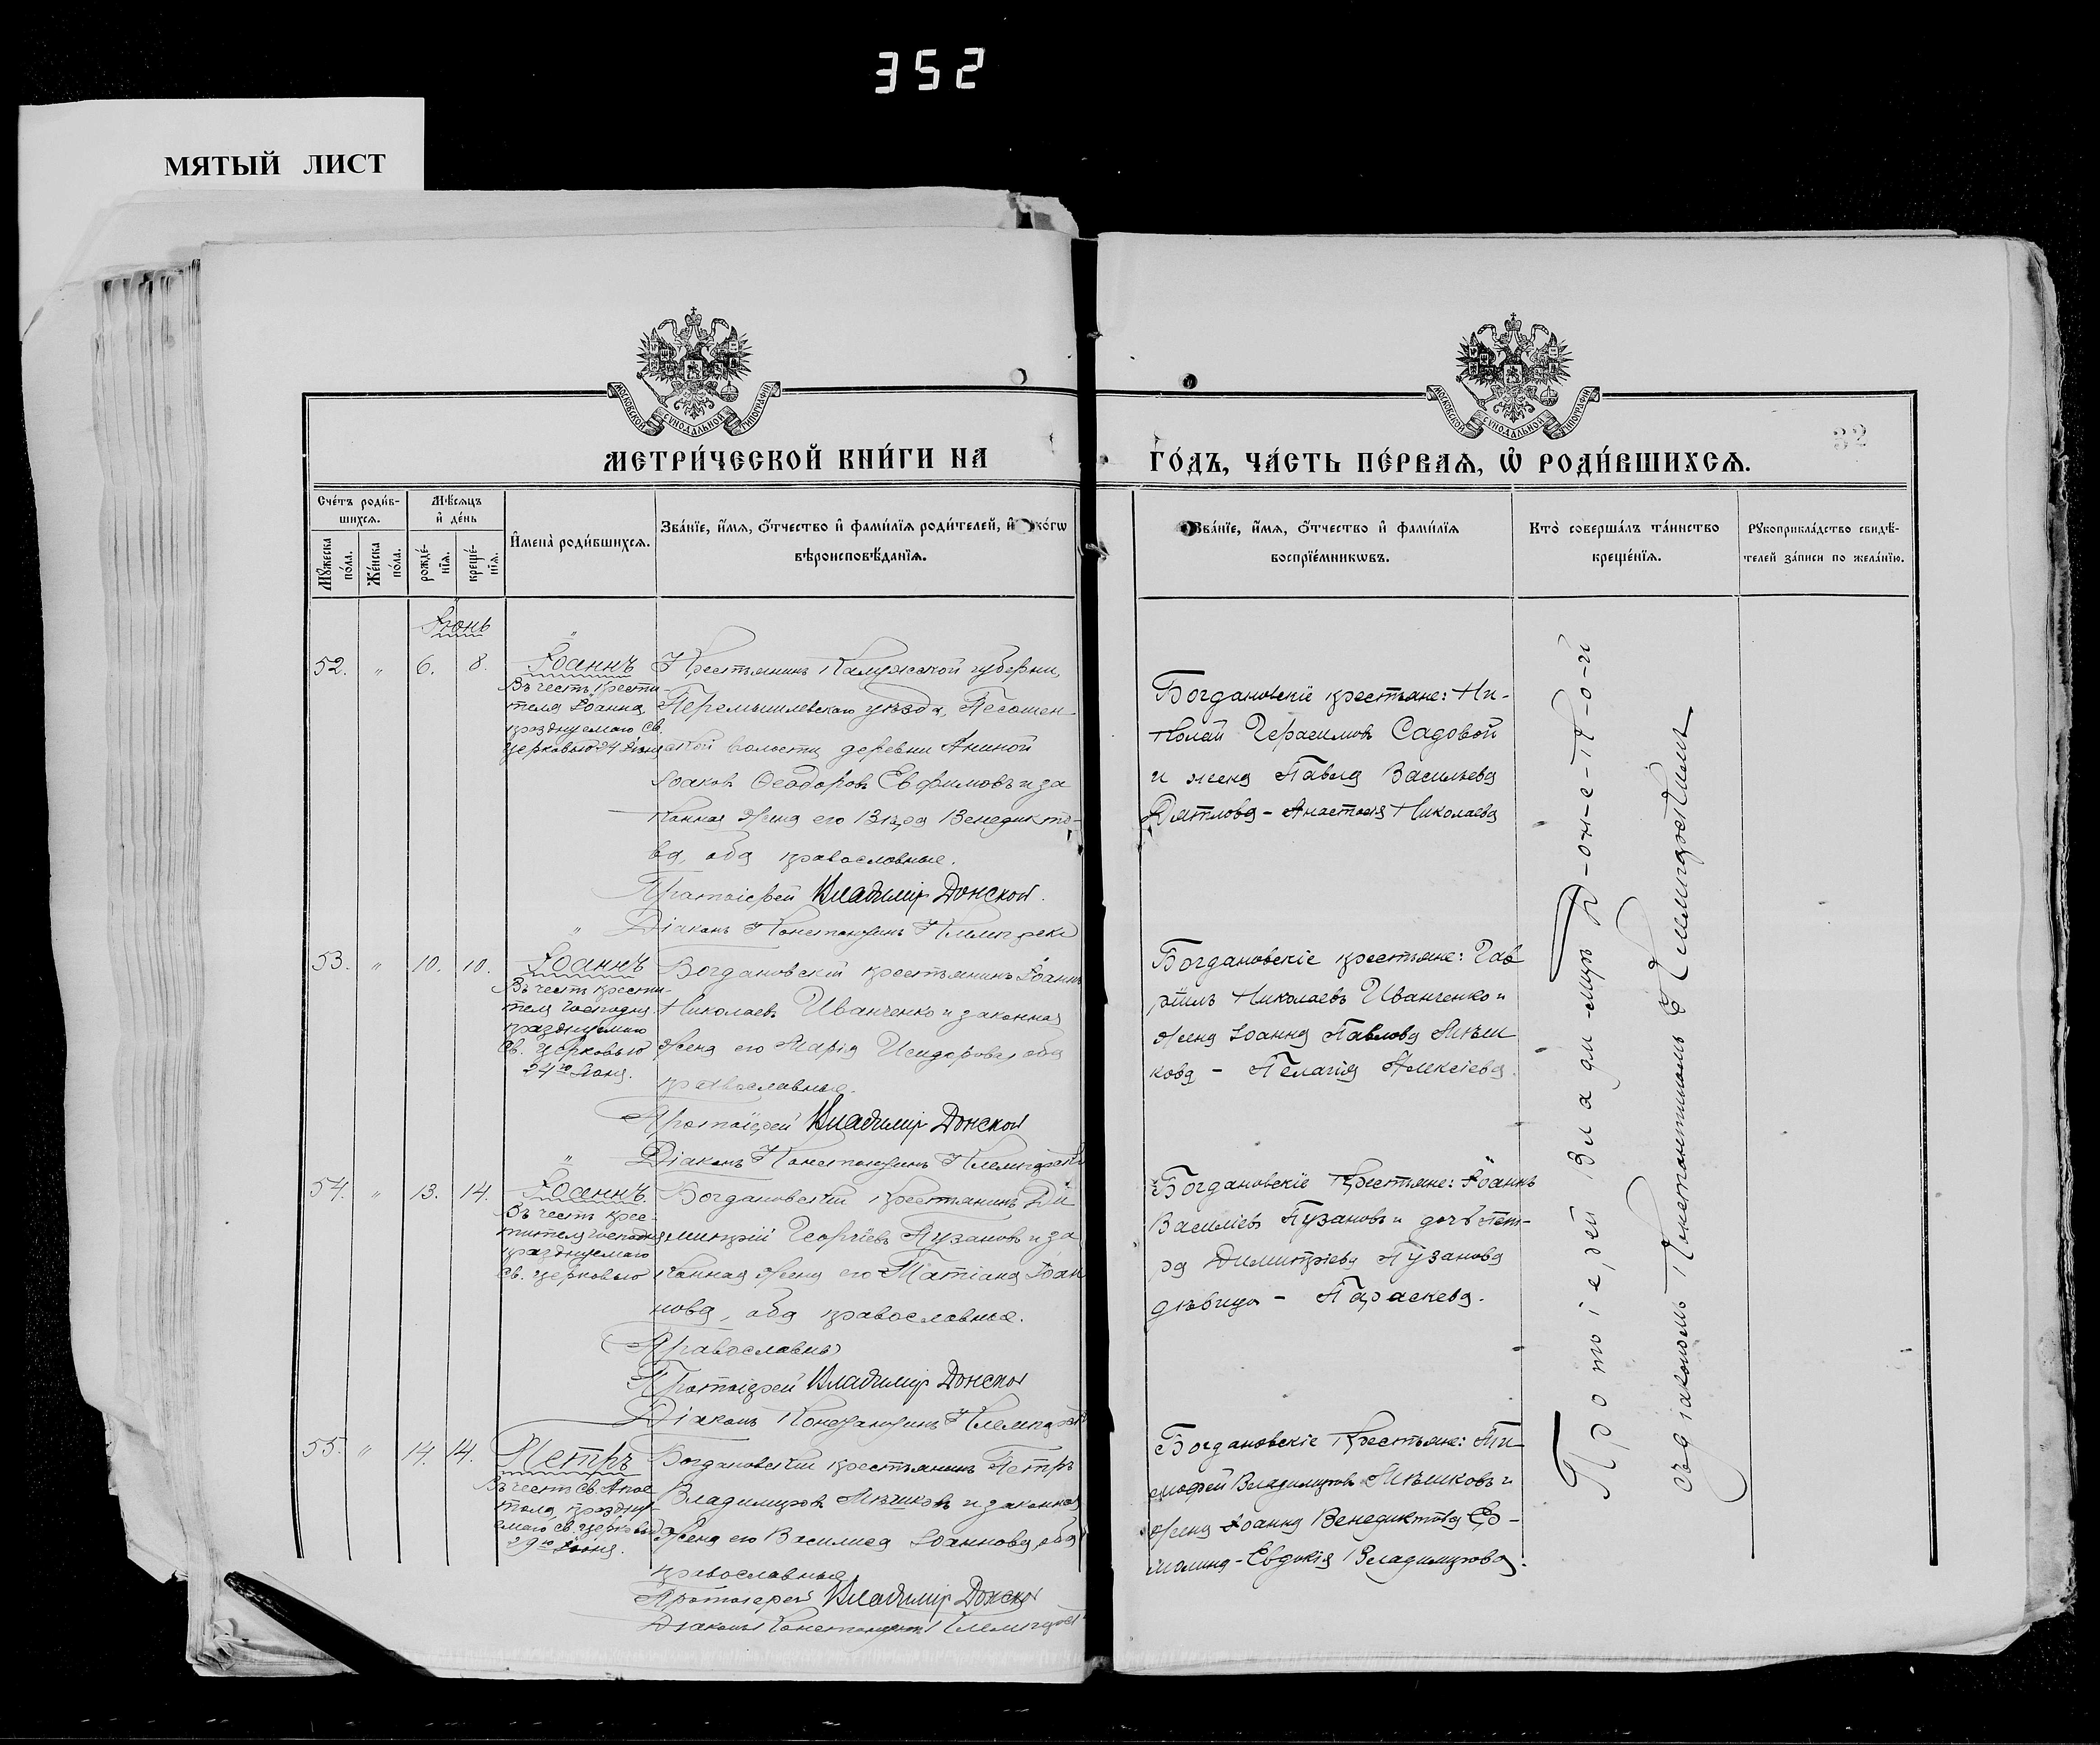 352
МЯТЫЙ ЛИСТ
МОСКОВСКОЙ СѴНОДАЛЬНОЙ ТИПОГРАФІИ
МОСКОВСКОЙ СѴНОДАЛЬНОЙ ТИПОГРАФІИ
МЕТРИ́ЧЕСКОЙ КНИ́ГИ НА
ГО́ДЪ, ЧА́СТЬ ПЕ́РВАѦ, Ѡ РОДИ́ВШИХСѦ.
Сче́тъ роди́в-
шихсѧ.
Мꙋ́жеска по́ла.
Же́нска по́ла.
Мѣ́сѧцъ
и҆ де́нь
рожде́-
нїѧ.
креще́-
нїѧ.
И҆мена̀ роди́вшихсѧ.
Зва́нїе, и҆́мѧ, ѻ҆́тчество и҆ фами́лїѧ роди́телей, и҆ ко́гѡ
вѣроисповѣ́данїѧ.
Зва́нїе, и҆́мѧ, ѻ҆́тчество и҆ фами́лїѧ
воспрїе́мникѡвъ.
Кто̀ соверша́лъ та́инство
креще́нїѧ.
Рꙋкоприкла́дство свидѣ́-
телей за́писи по жела́нїю.
Іюнь
52. " 6. 8. Іоаннъ
Въ честь Крести-
теля Іоанна,
празднуемаго Св.
Церковью 24 Іюня
Крестьянинъ Калужской губерніи,
Перемышлевскаго уѣзда, Песочен-
ской волости, деревни Аниной
Іоаковъ Ѳеодоровъ Евфимовъ и за
конная жена его Вѣра Венедикто-
ва, оба православные.
Протоіерей Владиміръ Донской.
Діаконъ Константинъ
Богдановскіе крестьяне: Ни-
колай Герасимовъ Садовой
и жена Павла Васильева
Дятлова - Анастасія Николаева
53. " 10. 10. Іоаннъ
Въ честь Крести-
теля Господня
празднуемаго
Св. Церковью
24го Іюня.
Богдановскій крестьянинъ Іоаннъ
Николаевъ Иванченко и законная
жена его Марія Исидорова, оба
православные.
Протоіерей Владиміръ Донской
Діаконъ Константинъ
Богдановскіе крестьяне: Гав
ріилъ Николаевъ Иванченко и
жена Іоанна Павлова Мѣши
кова - Пелагія Алексіева.
54. " 13. 14. Іоаннъ
Въ честь Крес-
тителя Господня
празднуемаго
Св. Церковью
Богдановскій крестьянинъ Ди
митрій Георгіевъ Пузановъ и за
конная жена его Татіана Іоан
нова, оба православные.
(Православны)
Протоіерей Владиміръ Донской
Діаконъ Константинъ
Богдановскіе крестьяне: Іоаннъ
Василіевъ Пузановъ и дочь Пет-
ра Димитріева Пузанова
дѣвица - Параскева.
55. " 14. 14. Петръ
Въ честь Св. Апос
тола, праздну-
емаго Св. Церковью
29го Іюня.
Богдановскій крестьянинъ Петръ
Владиміровъ Мѣшковъ и законная
жена его Василиса Іоаннова, оба
православные
Протоіерей Владиміръ Донской
Діаконъ Константинъ
Богдановскіе крестьяне: Ти
мофей Владиміровъ Мѣшковъ и
жена Іоанна Венедиктова Ер-
молина - Евдокія Владимірова.
Протоіерей Владиміръ Д-он-с-к-о-й
съ діакономъ Константиномъ